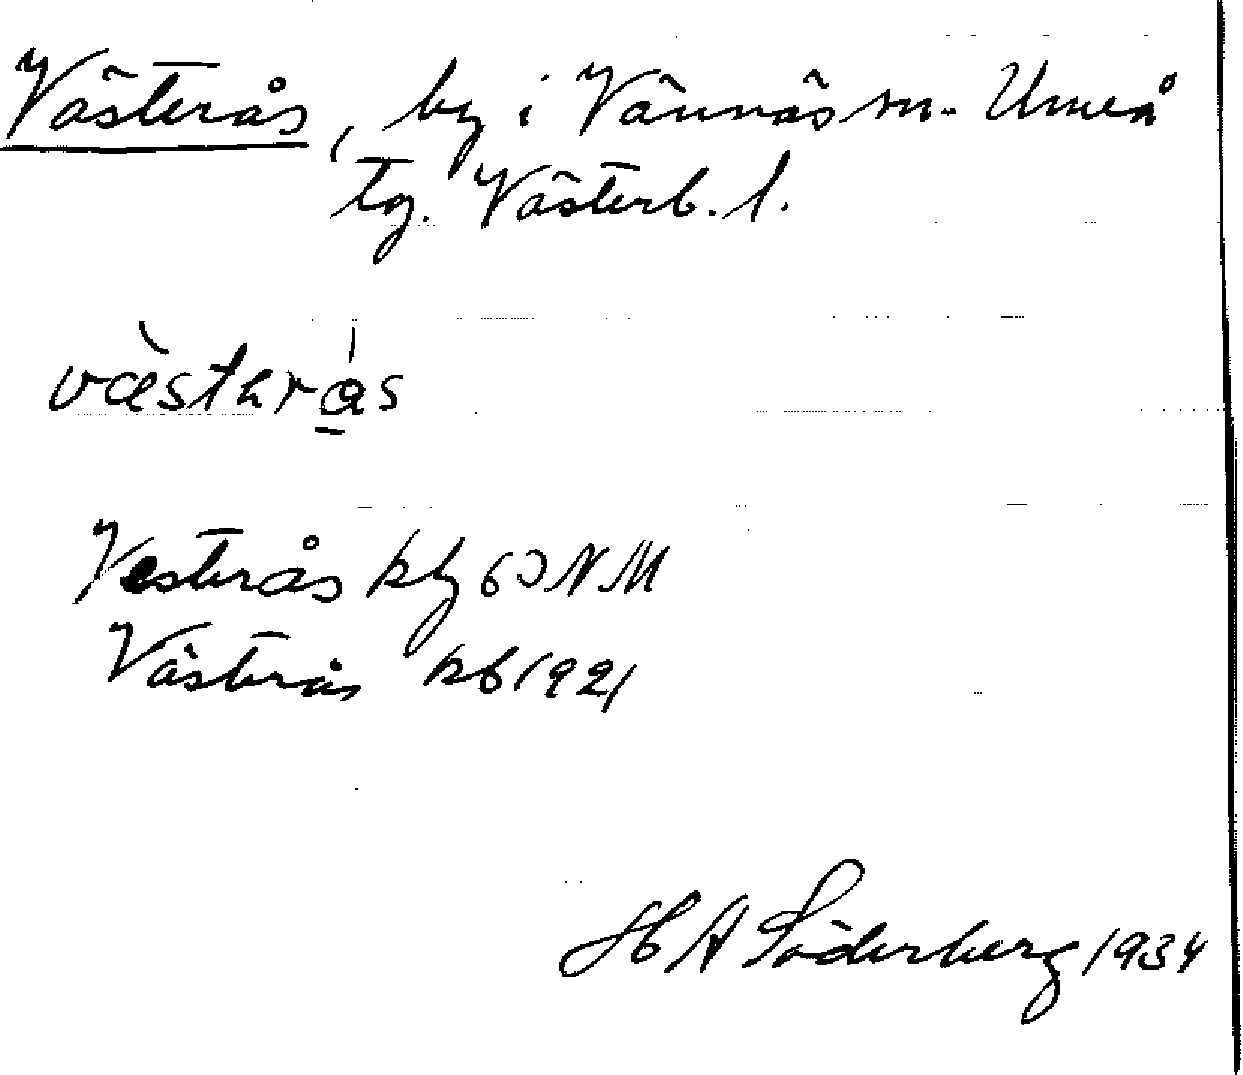 Västerås, by i Vännäs sn. Umeå
tg. Västerb. l.
västerås
Vesterås kbg 63 NM
Västerås kb 1921
H A Söderberg 1934